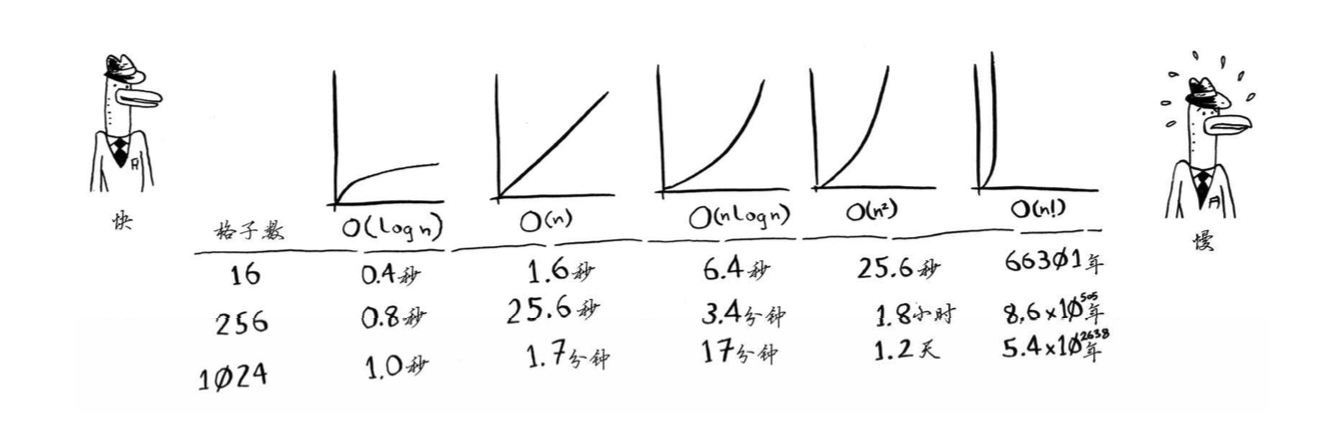 快
格子数 O(log n) O(n) O(n log n) O(n²) O(n!)
慢
16 0.4秒 1.6秒 6.4秒 25.6秒 66301年
256 0.8秒 25.6秒 3.4分钟 1.8小时 8.6x10⁵⁰⁵年
1024 1.0秒 1.7分钟 17分钟 1.2天 5.4x10²⁶³⁸年